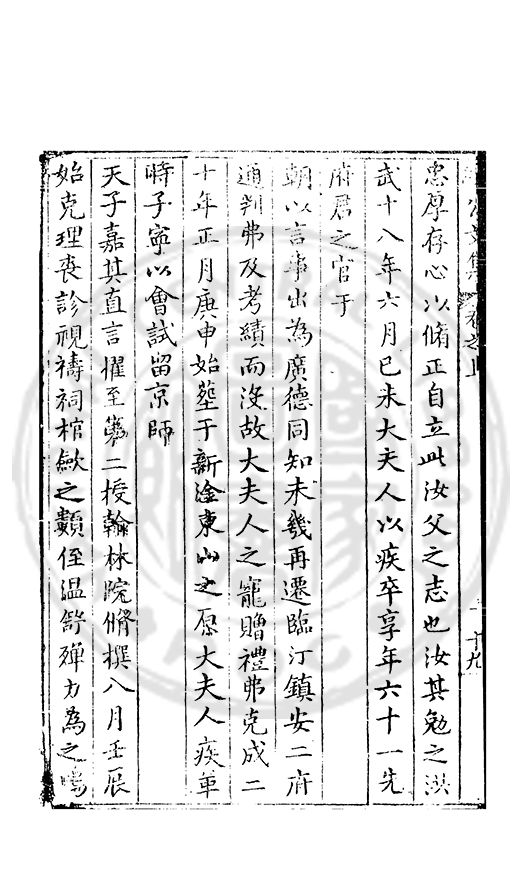 忠厚存心以脩正自立此汝父之志也汝其勉之洪
武十八年六月巳未大夫人以疾卒享年六十一先
府君之官于
朝以言事出為廣德同知未幾再遷臨汀鎮安二府
通判弗及考績而沒故大夫人之寵贈禮弗克成二
十年正月庚申始塟于新淦東山之原大夫人疾革
時子寧以會試留京師
天子嘉其直言擢至第二授翰林院脩撰八月壬辰
始克理喪診視禱祠棺歛之纇侄溫舒殫力為之嗚